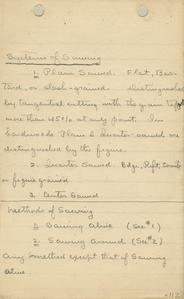 Systems of Sawing
1. Plain Sawed. Flat, Bas-
tard, or slash-grained. distinguished
by tangential cutting with the grain
more than 45% at any point. In
Hardwoods Plain & quarter sawed are
distinguished by the figure.
2. Quarter Sawed. Edge, Rift, Comb
or figure grained
3. Center Sawed
Methods of Sawing
1. Sawing Alive (See #1)
2. Sawing Around (See #2)
Any method except that of Sawing
Alive.